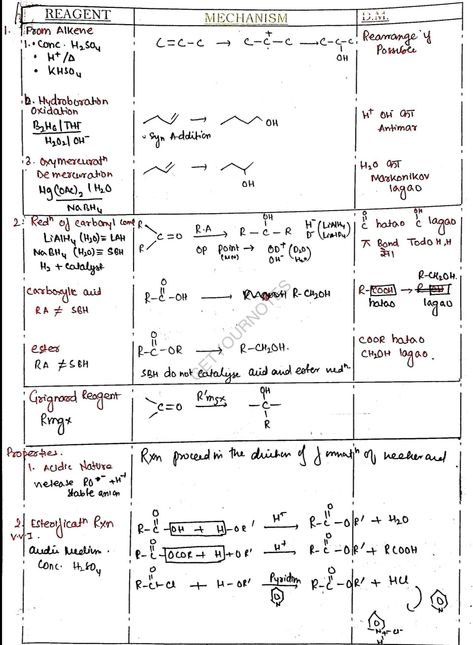 REAGENT MECHANISM D.M.
1. From Alkene
1. • Conc. H₂SO₄
• H⁺/Δ
• KHSO₄
C=C-C → C-C⁺-C → C-C-C
OH
Rearrange if
Possible
b. Hydroboration
Oxidation
B₂H₆ | THF
H₂O₂ | OH⁻
→ OH
• Syn Addition
H⁺ OH⁻ का
Antimar
3. Oxymercuratⁿ
Demercuration
Hg(OAc)₂ | H₂O
NaBH₄
→ OH
H₂O का
Markonikov
lagao
2. Redⁿ of carbonyl
LiAlH₄ (H₂O) = LAH
NaBH₄ (H₂O) = SBH
H₂ + Catalyst
R
R C=O R.A → R-C-R
OH
H⁻ (LiAlH₄)
D⁻ (LiAlD₄)
OD⁺ (D₂O)
OH⁻ (H₂O)
O
C hatao C lagao
OH
π Bond Todo H, H
Carboxylic acid
RA ≠ SBH
O
R-C-OH → R-CH₂OH
R-COOH → R-CH₂OH
hatao lagao
ester
RA ≠ SBH
O
R-C-OR → R-CH₂OH.
SBH do not catalyse acid and ester redⁿ.
COOR hatao
CH₂OH lagao.
Grignard Reagent
Rmgx
C=O R'mgx → -C-
OH
R
GETYOURNOTES
Properties.
1. Acidic Nature
release RO⁻ + H⁺
stable anion
Rxn proceed in the direction of formatⁿ of weaker acid
2. Esterificatⁿ Rxn
V.V.I.
Acidic Medium.
Conc. H₂SO₄
O
R-C-OH + H-OR' H⁺ → R-C-OR' + H₂O
O
R-C-OCOR + H-OR' H⁺ → R-C-OR' + RCOOH
O
R-C-Cl + H-OR' Pyridin → R-C-OR' + HCl
N
N
N⁺ Cl⁻
H